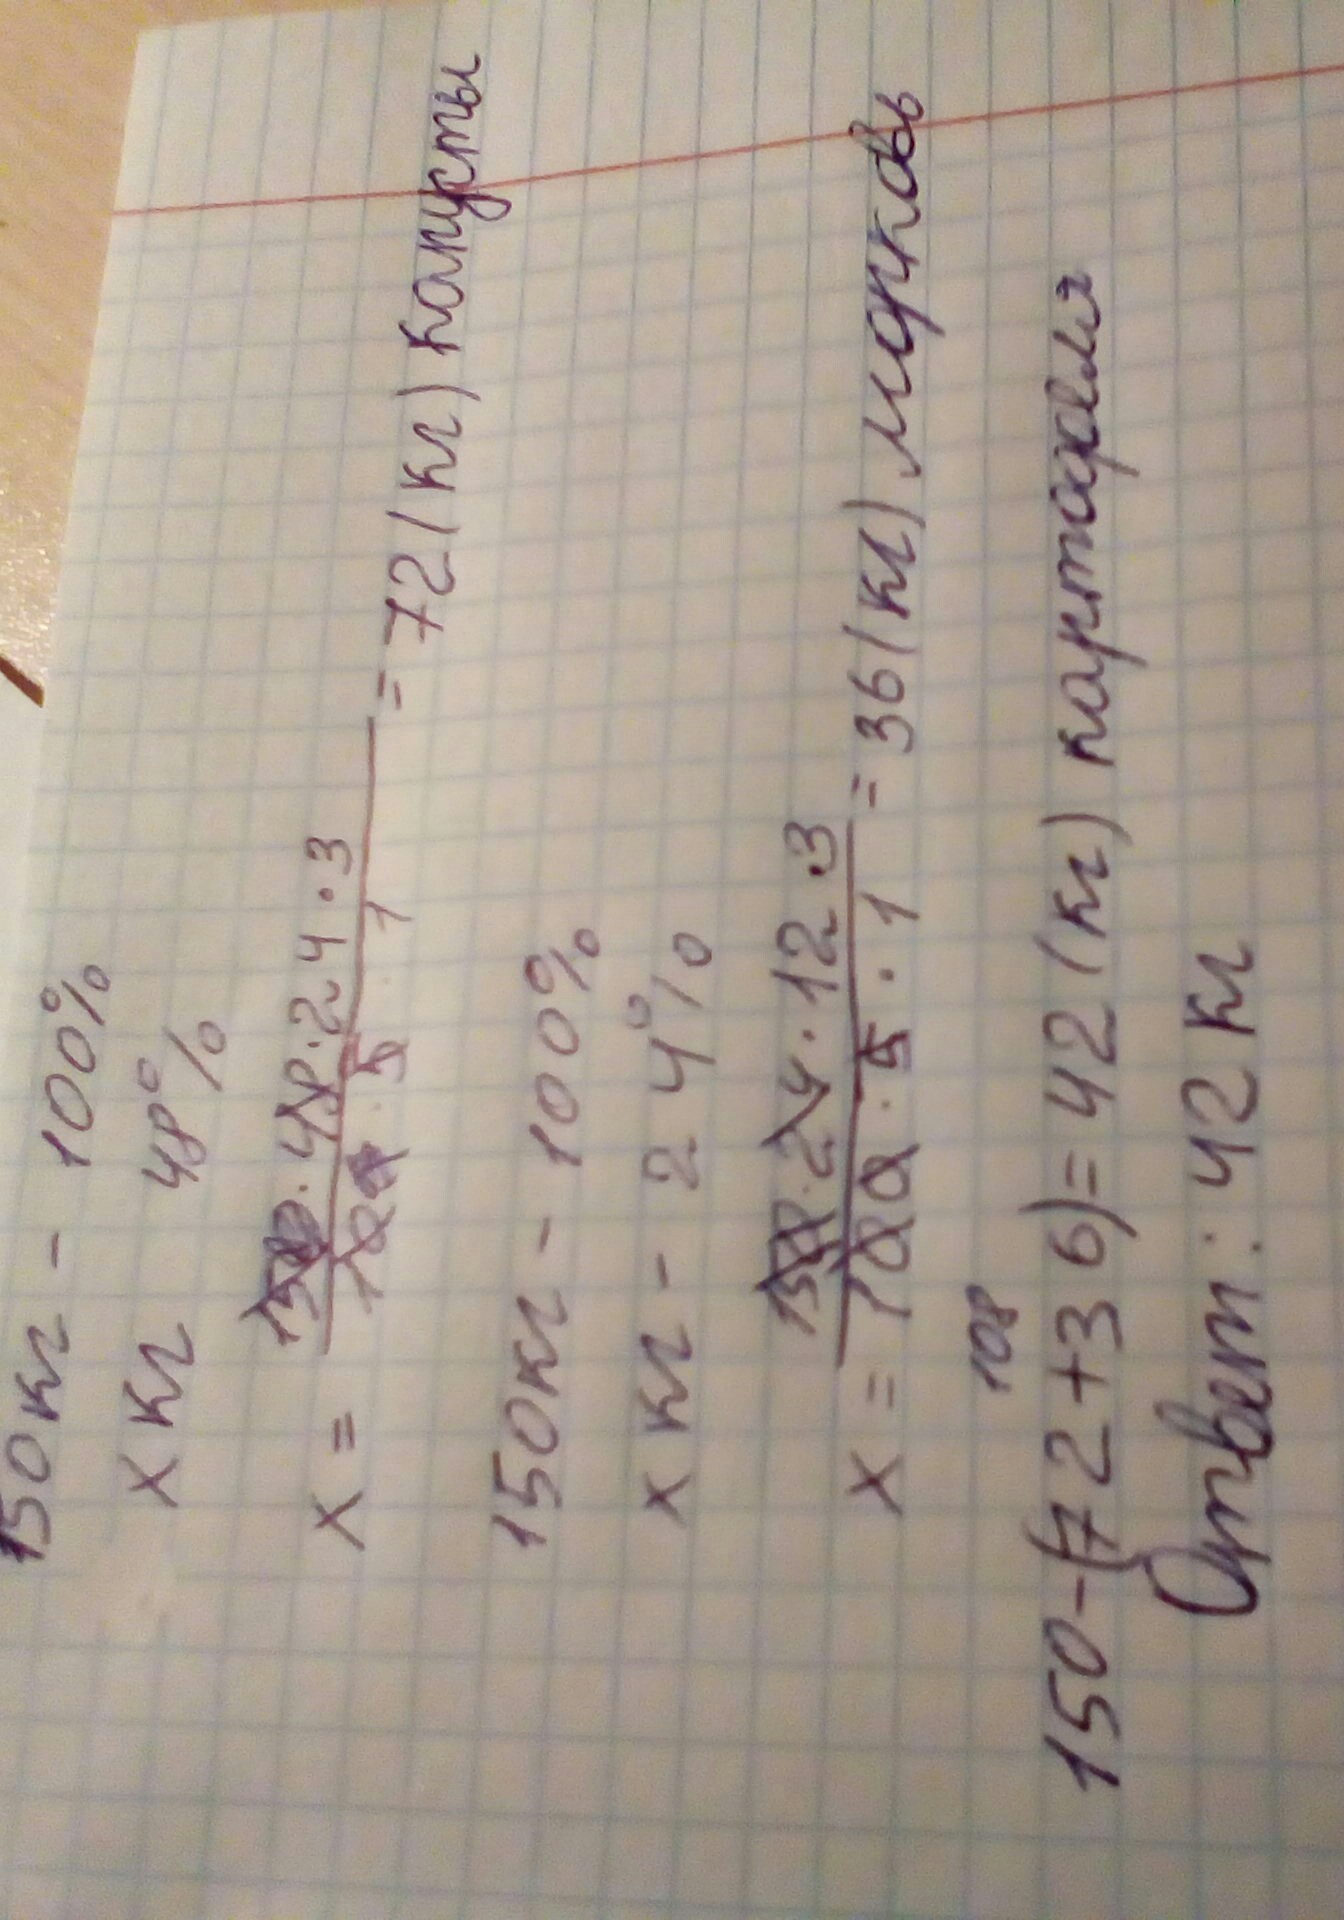 150кг - 100%
х кг 48%
х = 150 · 48 · 24 · 3 / 100 · 5 1 = 72 (кг) капусты
150кг - 100%
х кг - 24%
х = 150 · 24 · 12 · 3 / 100 · 5 · 1 = 36 (кг) марковь
108
150-(72+36)=42 (кг) картофеля
Ответ: 42 кг